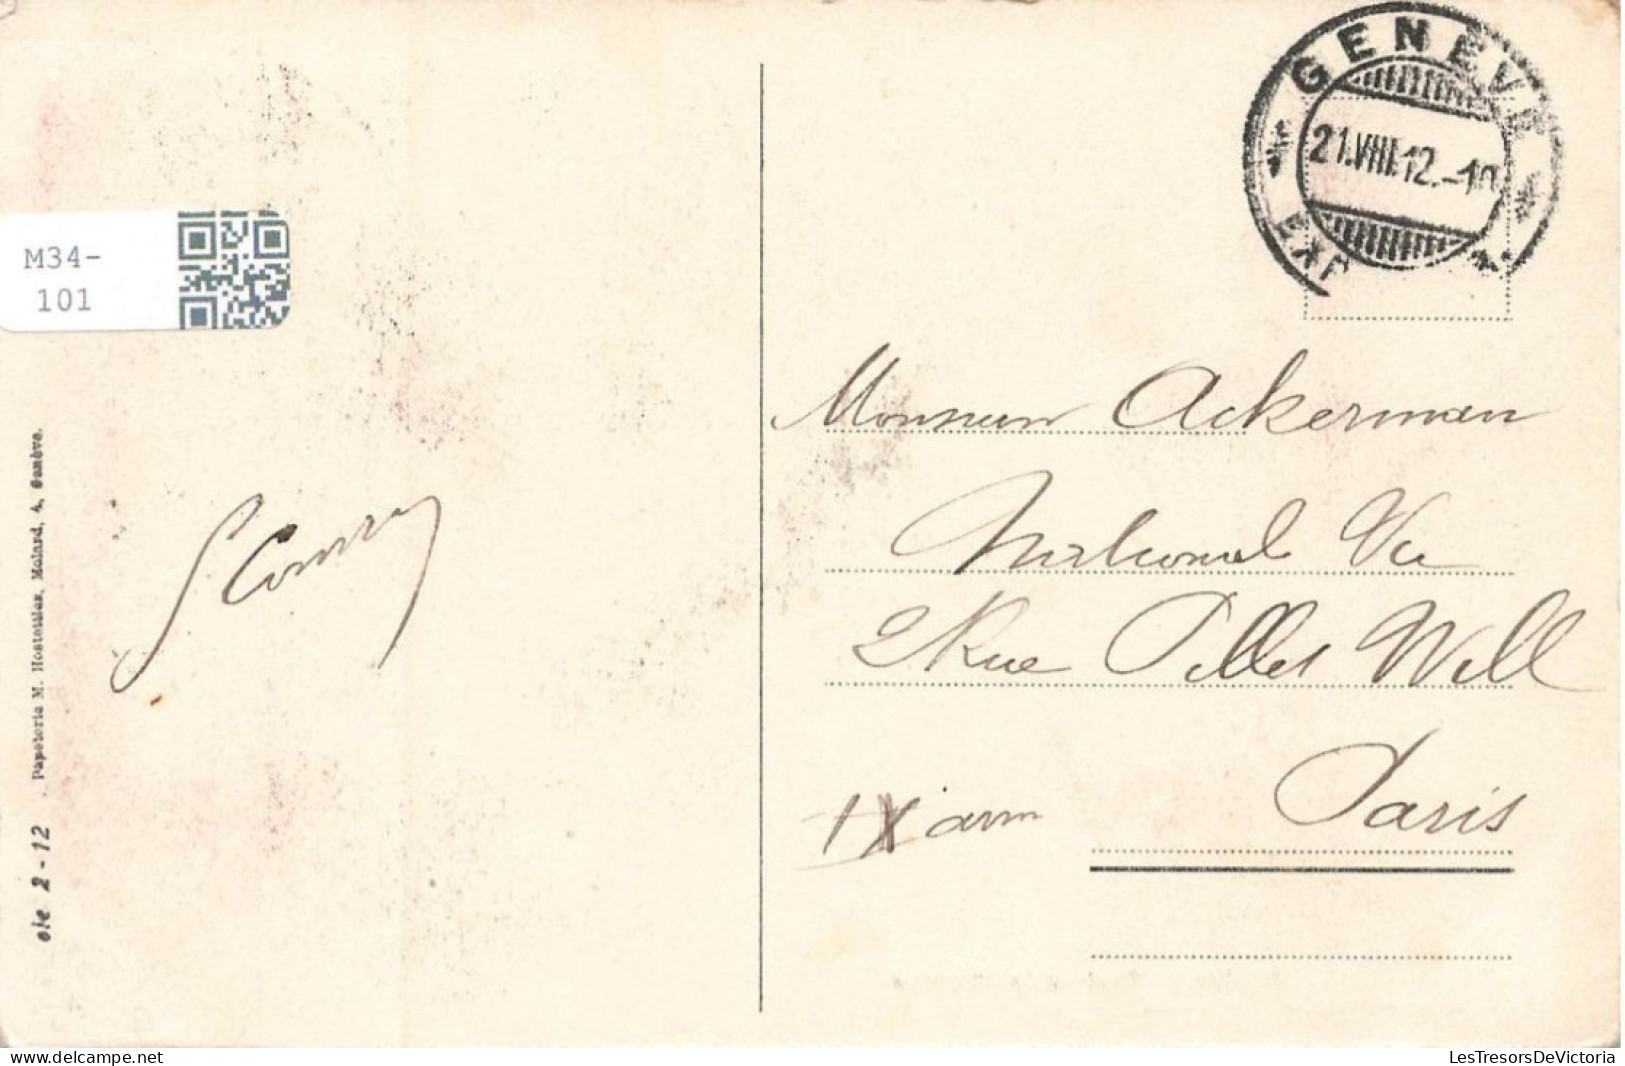 GENEVE
21.VIII.12.-10
EXP
M34-
101
Papeterie M. Hostettler, Molard, 4, Genève.
2-12
Monsieur Ackerman
National Vie
2 Rue Pillet Will
Paris
IX arm
LesTresorsDeVictoria
delcampe.net